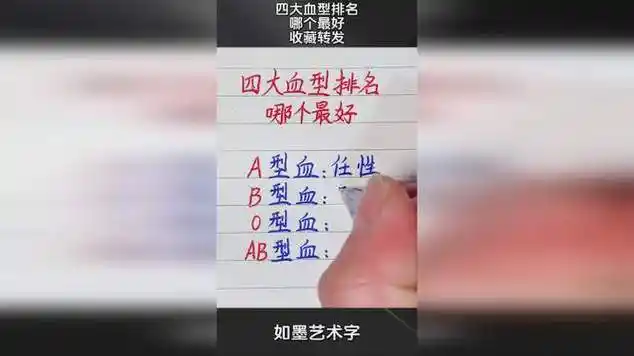 四大血型排名
哪个最好
收藏转发
四大血型排名
哪个最好
A型血:任性
B型血:
O型血:
AB型血:
如墨艺术字